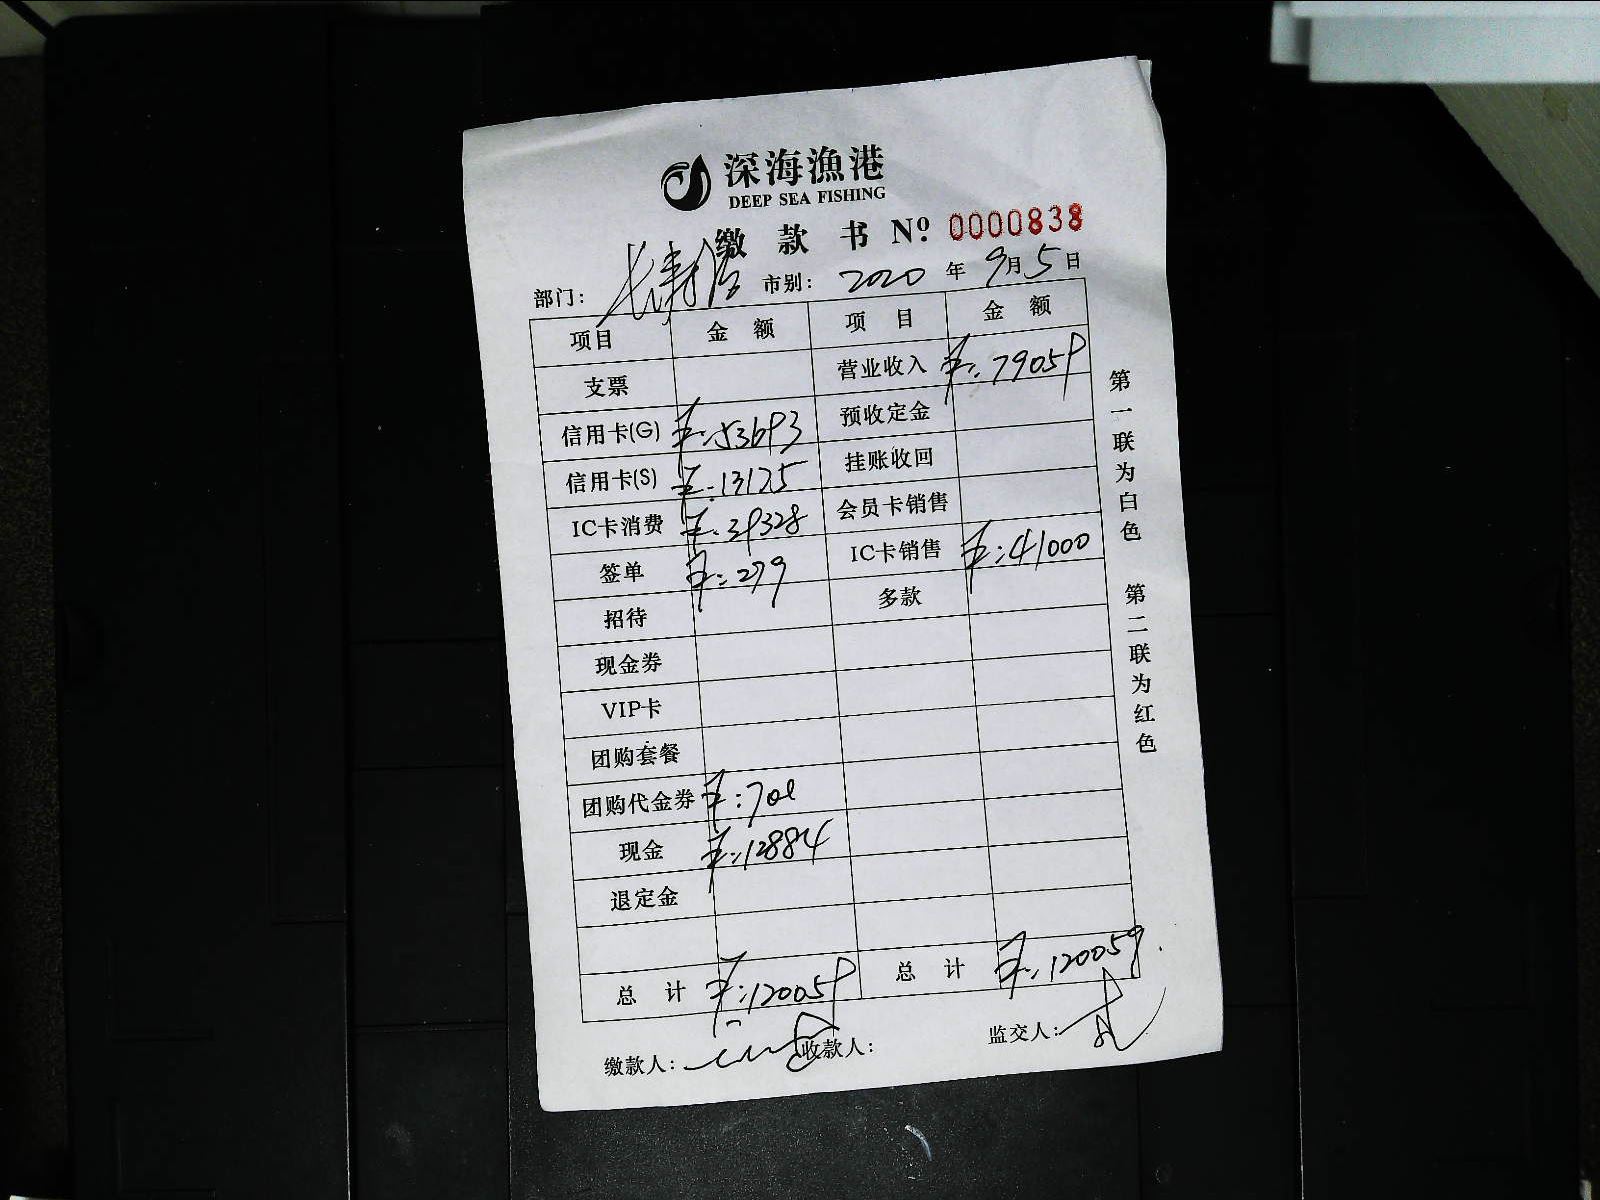 深海漁港
DEEP SEA FISHING
缴款书 Nº 0000838
部门： 市别： 2020 年 9月 5 日
项目 金额 项目 金额
支票 营业收入 ¥:79059
信用卡(G) ¥:53693 预收定金
信用卡(S) ¥:13175 挂账收回
IC卡消费 ¥:39328 会员卡销售
签单 ¥:279 IC卡销售 ¥:41000
招待 多款
现金券
VIP卡
团购套餐
团购代金券 ¥:700
现金 ¥:12884
退定金
总计 ¥:120059 总计 ¥:120059
缴款人： 收款人： 监交人：
第一联为白色 第二联为红色